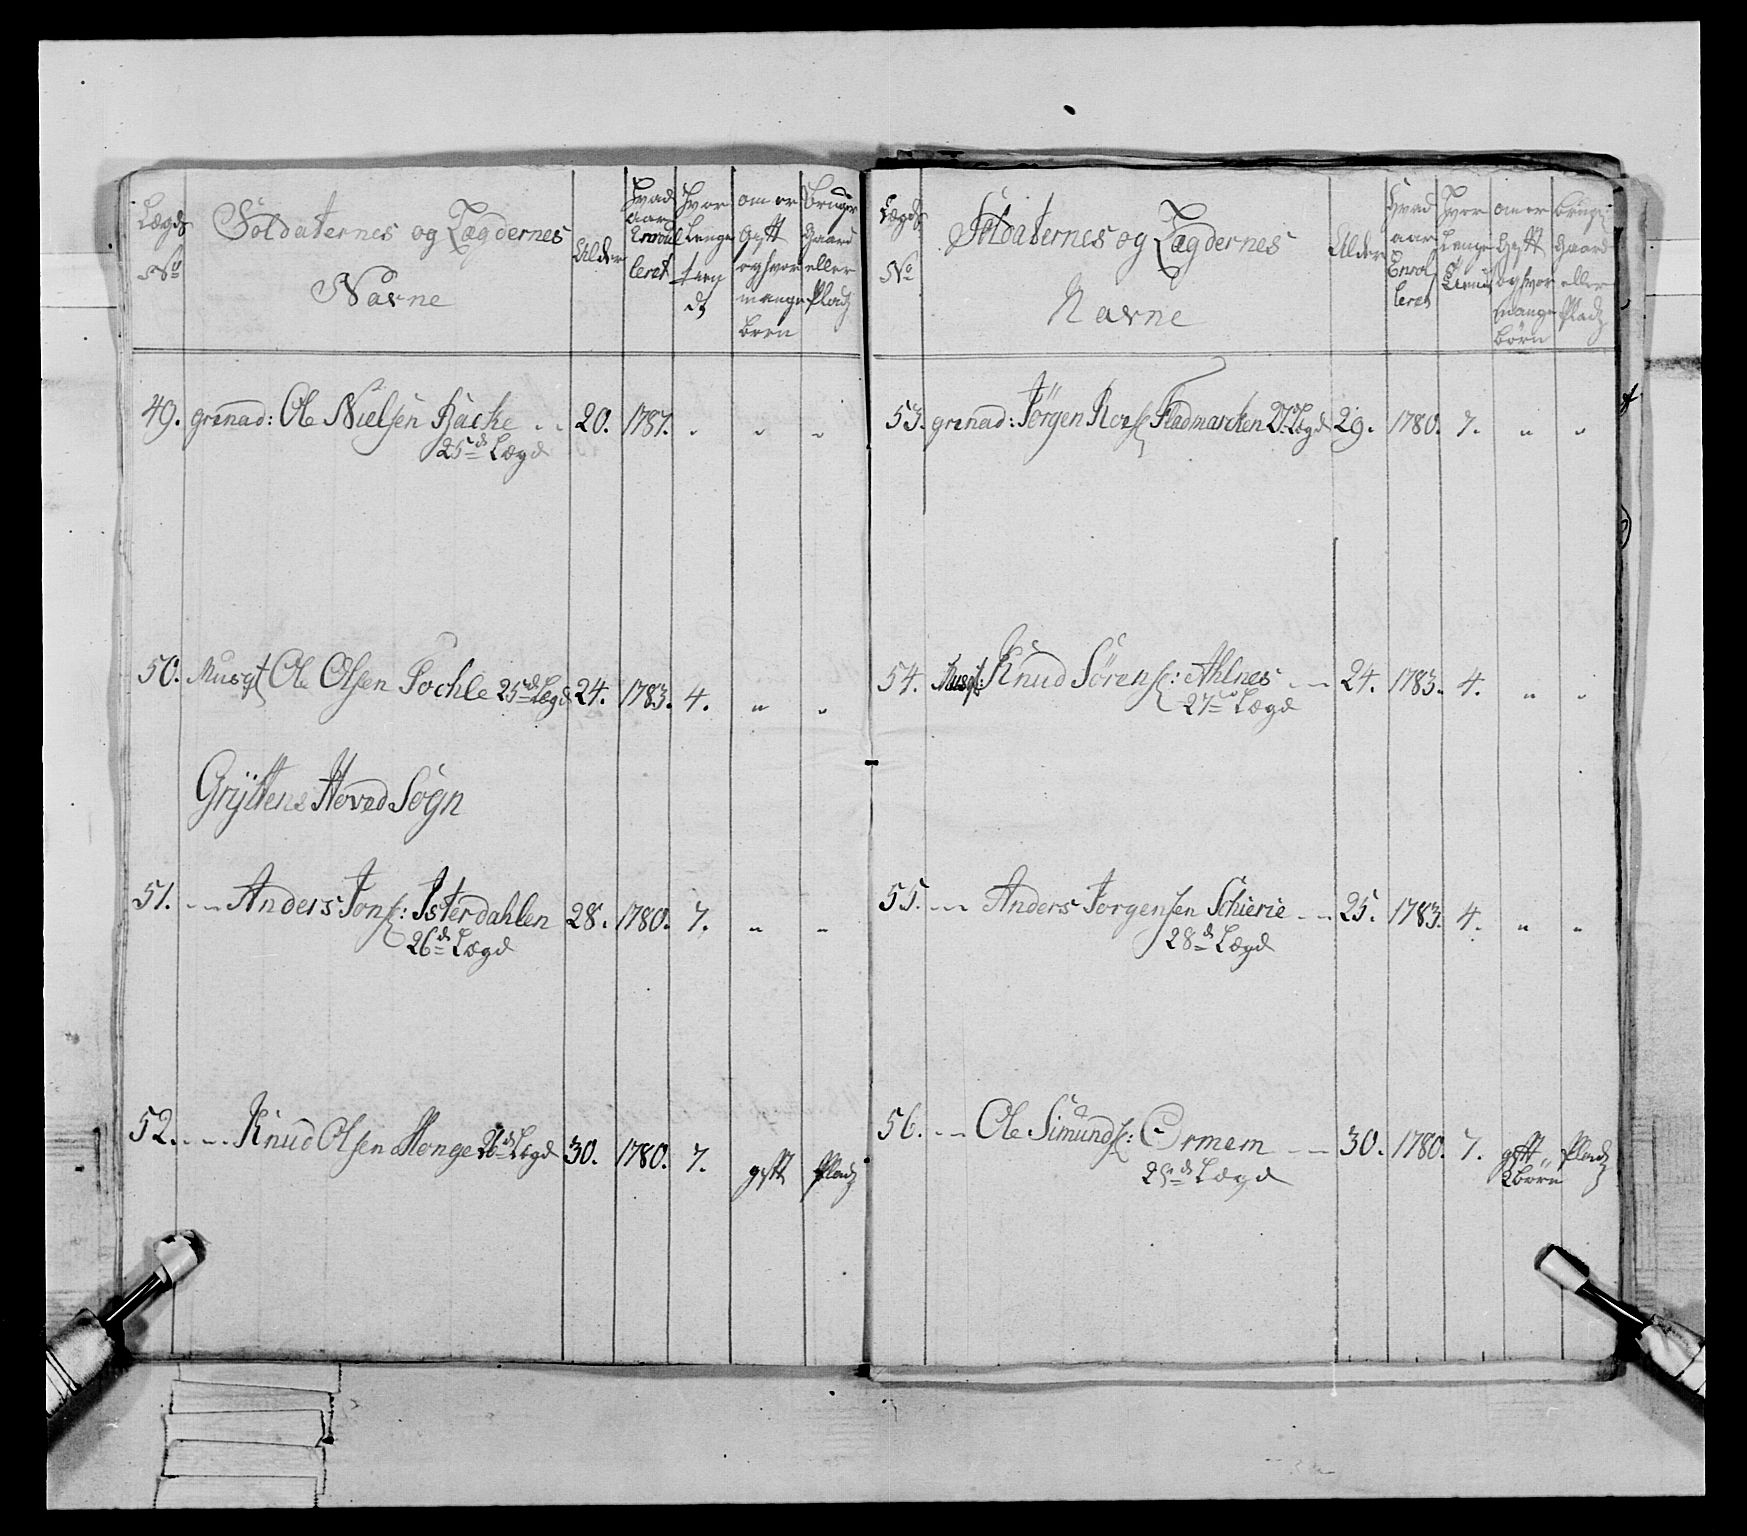 Lægds No
Soldaternes og Lægdernes Navne
Alder
Hvad aar Enroulleret
Hvor lenge tien dt
om er gift og hvor mange børn
bruger gaard eller Pladz
49. grenad: Ole Nielsen Backe 20. 1787. " " "
25de Lægd
50. Musqt Ole Olsen Sochle 25de Lægd 24. 1783. 4. " "
Gryttens Hoved Sogn
51. - - Anders Jons: Isterdahlen 28. 1780. 7. " "
26de Lægd
52. - - Knud Olsen Monge 26de Lægd 30. 1780. 7. gift Pladz
Lægds No
Soldaternes og Lægdernes Navne
Alder
Hvad aar Enrolleret
Hvor lenge tient
om er gift og hvor mange børn
bruger gaard eller Pladz
53. grenad: Jørgen Rors Fladmarcken 27de Lægd 29. 1780. 7. " "
54. Musqt: Knud Sørens: Ahlnes - - 24. 1783. 4. " "
27de Lægd
55. - - Anders Jorgensen Schierie - - 25. 1783. 4. " "
28de Lægd
56. - - Ole Simunds: Ormem - - 30. 1780. 7. gift Pladz
børn
Lægd